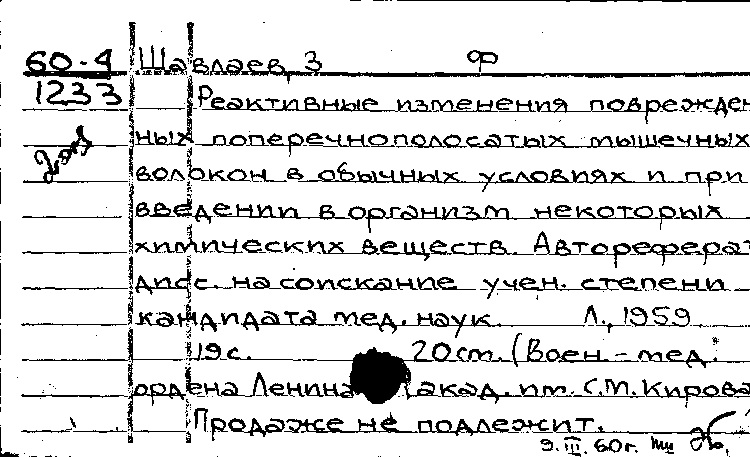 60-4 Шавлаев, З Ф
1233 Реактивные изменения поврежден
ных поперечнополосатых мышечных
волокон в обычных условиях и при
введении в организм некоторых
химических веществ. Автореферат
дисс. на соискание учен. степени
кандидата мед. наук. Л., 1959.
19с. 20см. (Воен.-мед.
ордена Ленина акад. им. С.М. Кирова
Продаже не подлежит.
9.III.60г.